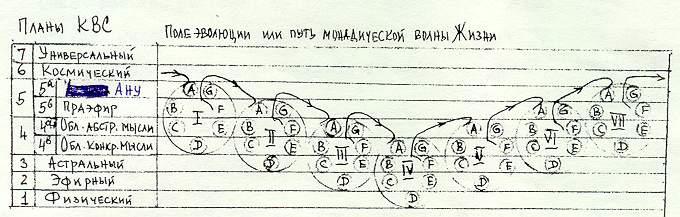 Планы КВС
Поле эволюции или путь монадической волны Жизни
7 Универсальный
6 Космический
5 5а Ану
5б Праэфир
4 4а Обл. абстр. мысли
4в Обл. конкр. мысли
3 Астральный
2 Эфирный
1 Физический
A G B F I C E D
A G B F II C E D
A G B F III C E D
A G B F IV C E D
A G B F V C E D
A G B F VI C E D
A G B F VII C E D